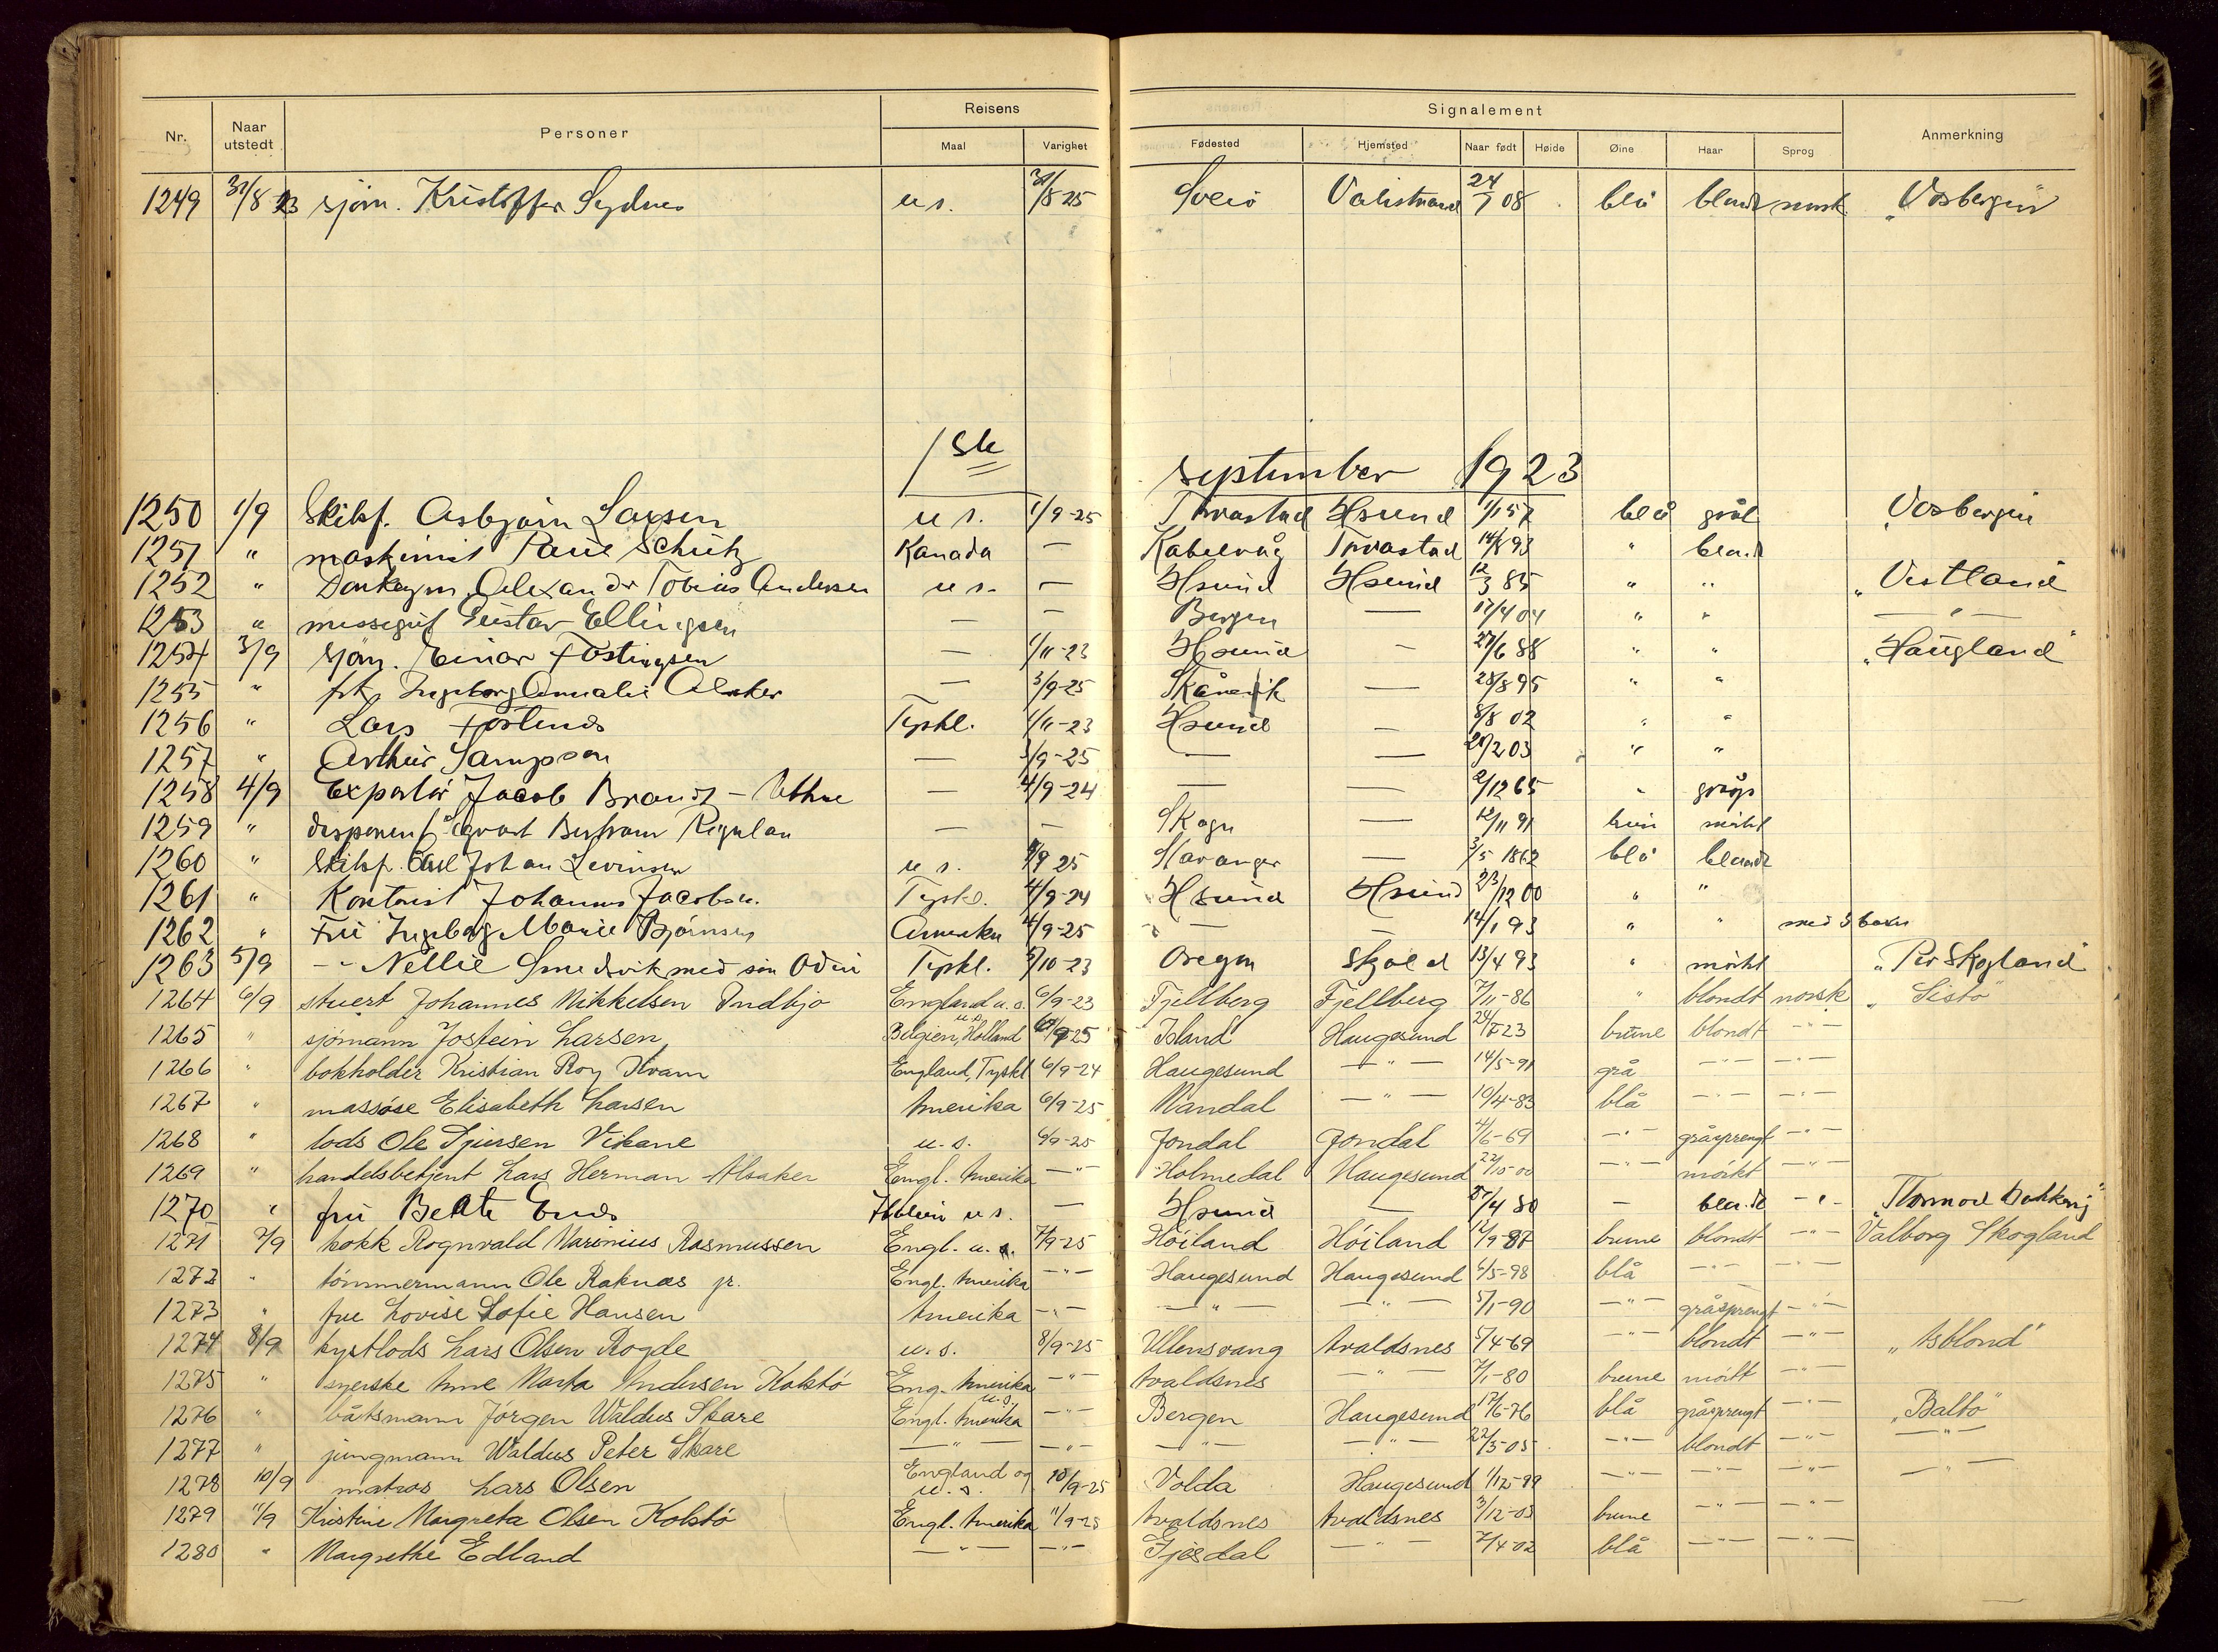 Nr. Naar utstedt Personer Reisens Maal Varighet Signalement Fødested Hjemsted Naar født Høide Øine Haar Sprog Anmerkning
1249 31/8 23 sjøm. Kristoffer Sydnes u s. 31/8-25 Sveio Valestrand 24/7 08 blå blondt norsk „Vosbergen"
September 1923
1250 1/9 Skibsf. Asbjørn Larsen u s. 1/9-25 Torvastad Hsund 1/1 57 blå grål Vosbergen
1251 " maskinist Paul Schütz Kanada — Kabelvåg Torvastad 14/8 93 " blondt
1252 " Donkeym. Alexander Tobias Andersen u s. — Hsund Hsund 12/3 85 " " „Vestland
1253 " messegut Gustav Ellingsen — — Bergen — 17/4 04 " " — " —
1254 3/9 sjøm. Einar Fostingsen — 1/11-23 Hsund — 27/6 88 " " „Haugland"
1255 " frk. Ingeborg Amalie Alsaker — 3/9-25 Skånevik — 28/8 95 " "
1256 " Lars Tyskl. 1/11-23 Hsund — 8/8 02 " "
1257 " Arthur Sampson — 3/9-25 — — 20/2 03 " "
1258 4/9 Exportør Jacob Brandt-Uthne — 4/9-24 — — 2/12 65 " gråsp
1259 " disponent Bertram — — — 12/11 91 brun mørkt
1260 " Skibsf. Carl Johan Levinsen u s. 4/9 25 Stavanger — 3/5 1862 blå blondt
1261 " Kontorist Johannes Jacobsen Tyskl. 4/9-24 Hsund Hsund 23/12 00 " "
1262 " Fru Ingeborg Marie Bjørnsen Amerika 4/9-25 — — 14/1 93 " " med 3 barn
1263 5/9 —"— Nellie Smedsvik med søn Odin Tyskl. 5/10-23 Oregon Skjold 13/4 93 " mørkt „Per Skogland"
1264 6/9 stuert Johannes Mikkelsen Indbjo England u. s. 6/9-23 Fjellberg Fjellberg 7/11-86 " blondt norsk „Sisto"
1265 " sjømann Jostein Larsen Belgien, Holland u.s. 6/9-25 Island Haugesund 24/7 23 brune blondt —"—
1266 " bokholder Kristian Roy Kvam England, Tyskl 6/9-24 Haugesund —"— 14/5-91 grå —"— —"—
1267 " massøse Elisabeth Larsen Amerika 6/9-25 Mandal —"— 10/4-83 blå —"— —"—
1268 " lods Ole Tjersen Vikane u. s. 6/9-25 Jondal Jondal 4/6-69 —"— gråsprengt —"—
1269 " handelsbetjent Lars Herman Alsaker Engl. Amerika —"— Holmedal Haugesund 22/10-00 —"— mørkt —"—
1270 " fru Beate Italien u s. — Hsund — 27/4 80 — blondt —"— „Tormod Bakkevig"
1271 7/9 kokk Rognvald Marinius Rasmussen Engl. u. s. 7/9-25 Høiland Høiland 12/9-87 brune blondt —"— Valborg Skogland
1272 " tømmermann Ole Raknæs jr. Engl. Amerika —"— Haugesund Haugesund 6/5-98 blå —"— —"—
1273 " fru Lovise Sofie Hansen Amerika —"— —"— —"— 5/1-90 —"— gråsprengt —"—
1274 8/9 kystlods Lars Olsen Rogde u. s. 8/9-25 Ullensvang Avaldsnes 5/4-69 —"— blondt —"— „Asblond"
1275 " syerske Anne Marta Andersen Kolstø Eng. Amerika —"— Avaldsnes —"— 7/1-80 brune mörkt —"—
1276 " båtsmann Jørgen Waldus Skare Engl. Amerika u.s. —"— Bergen Haugesund 17/6-76 blå gråsprengt —"— „Balto"
1277 " jungmann Waldus Peter Skare —"— —"— —"— —"— 22/5-05 —"— blondt —"— —"—
1278 10/9 matros Lars Olsen England og u. s. 10/9-25 Volda Haugesund 1/12-99 —"— —"— —"— —"—
1279 11/9 Kristine Margreta Olsen Kolstø Engl. Amerika 11/9-25 Avaldsnes Avaldsnes 3/12-03 brune —"— —"—
1280 " Margrethe Edland —"— —"— Gjesdal —"— 7/4-02 blå —"— —"—